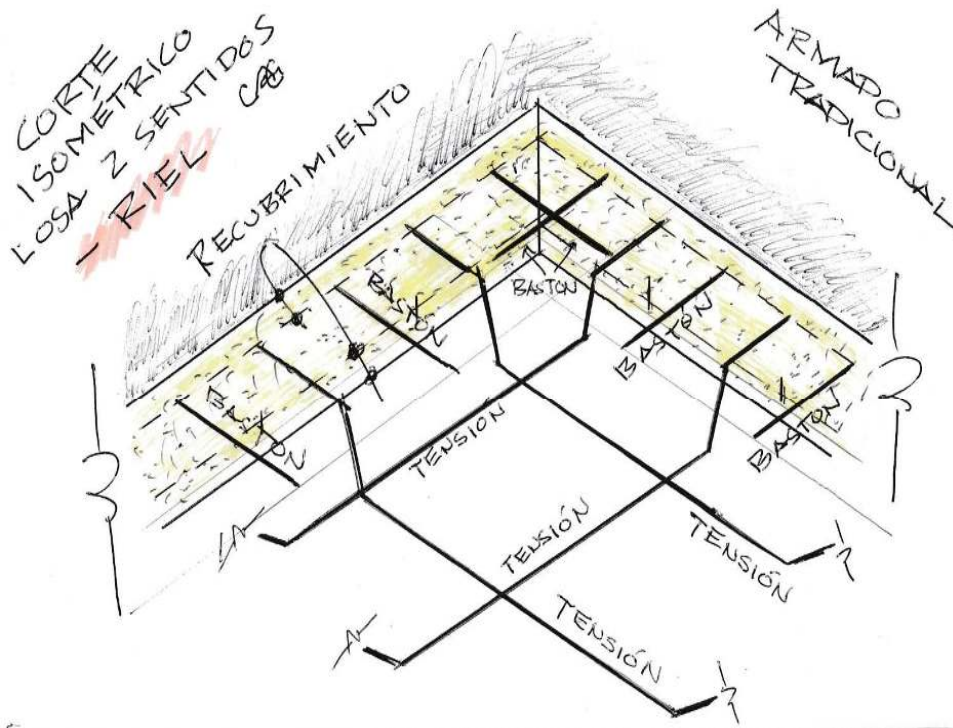 CORTE
ISOMÉTRICO
LOSA 2 SENTIDOS
- RIEL
RECUBRIMIENTO
ARMADO
TRADICIONAL
BASTON
BASTON
BASTON
BASTON
BASTON
TENSIÓN
TENSIÓN
TENSIÓN
TENSIÓN